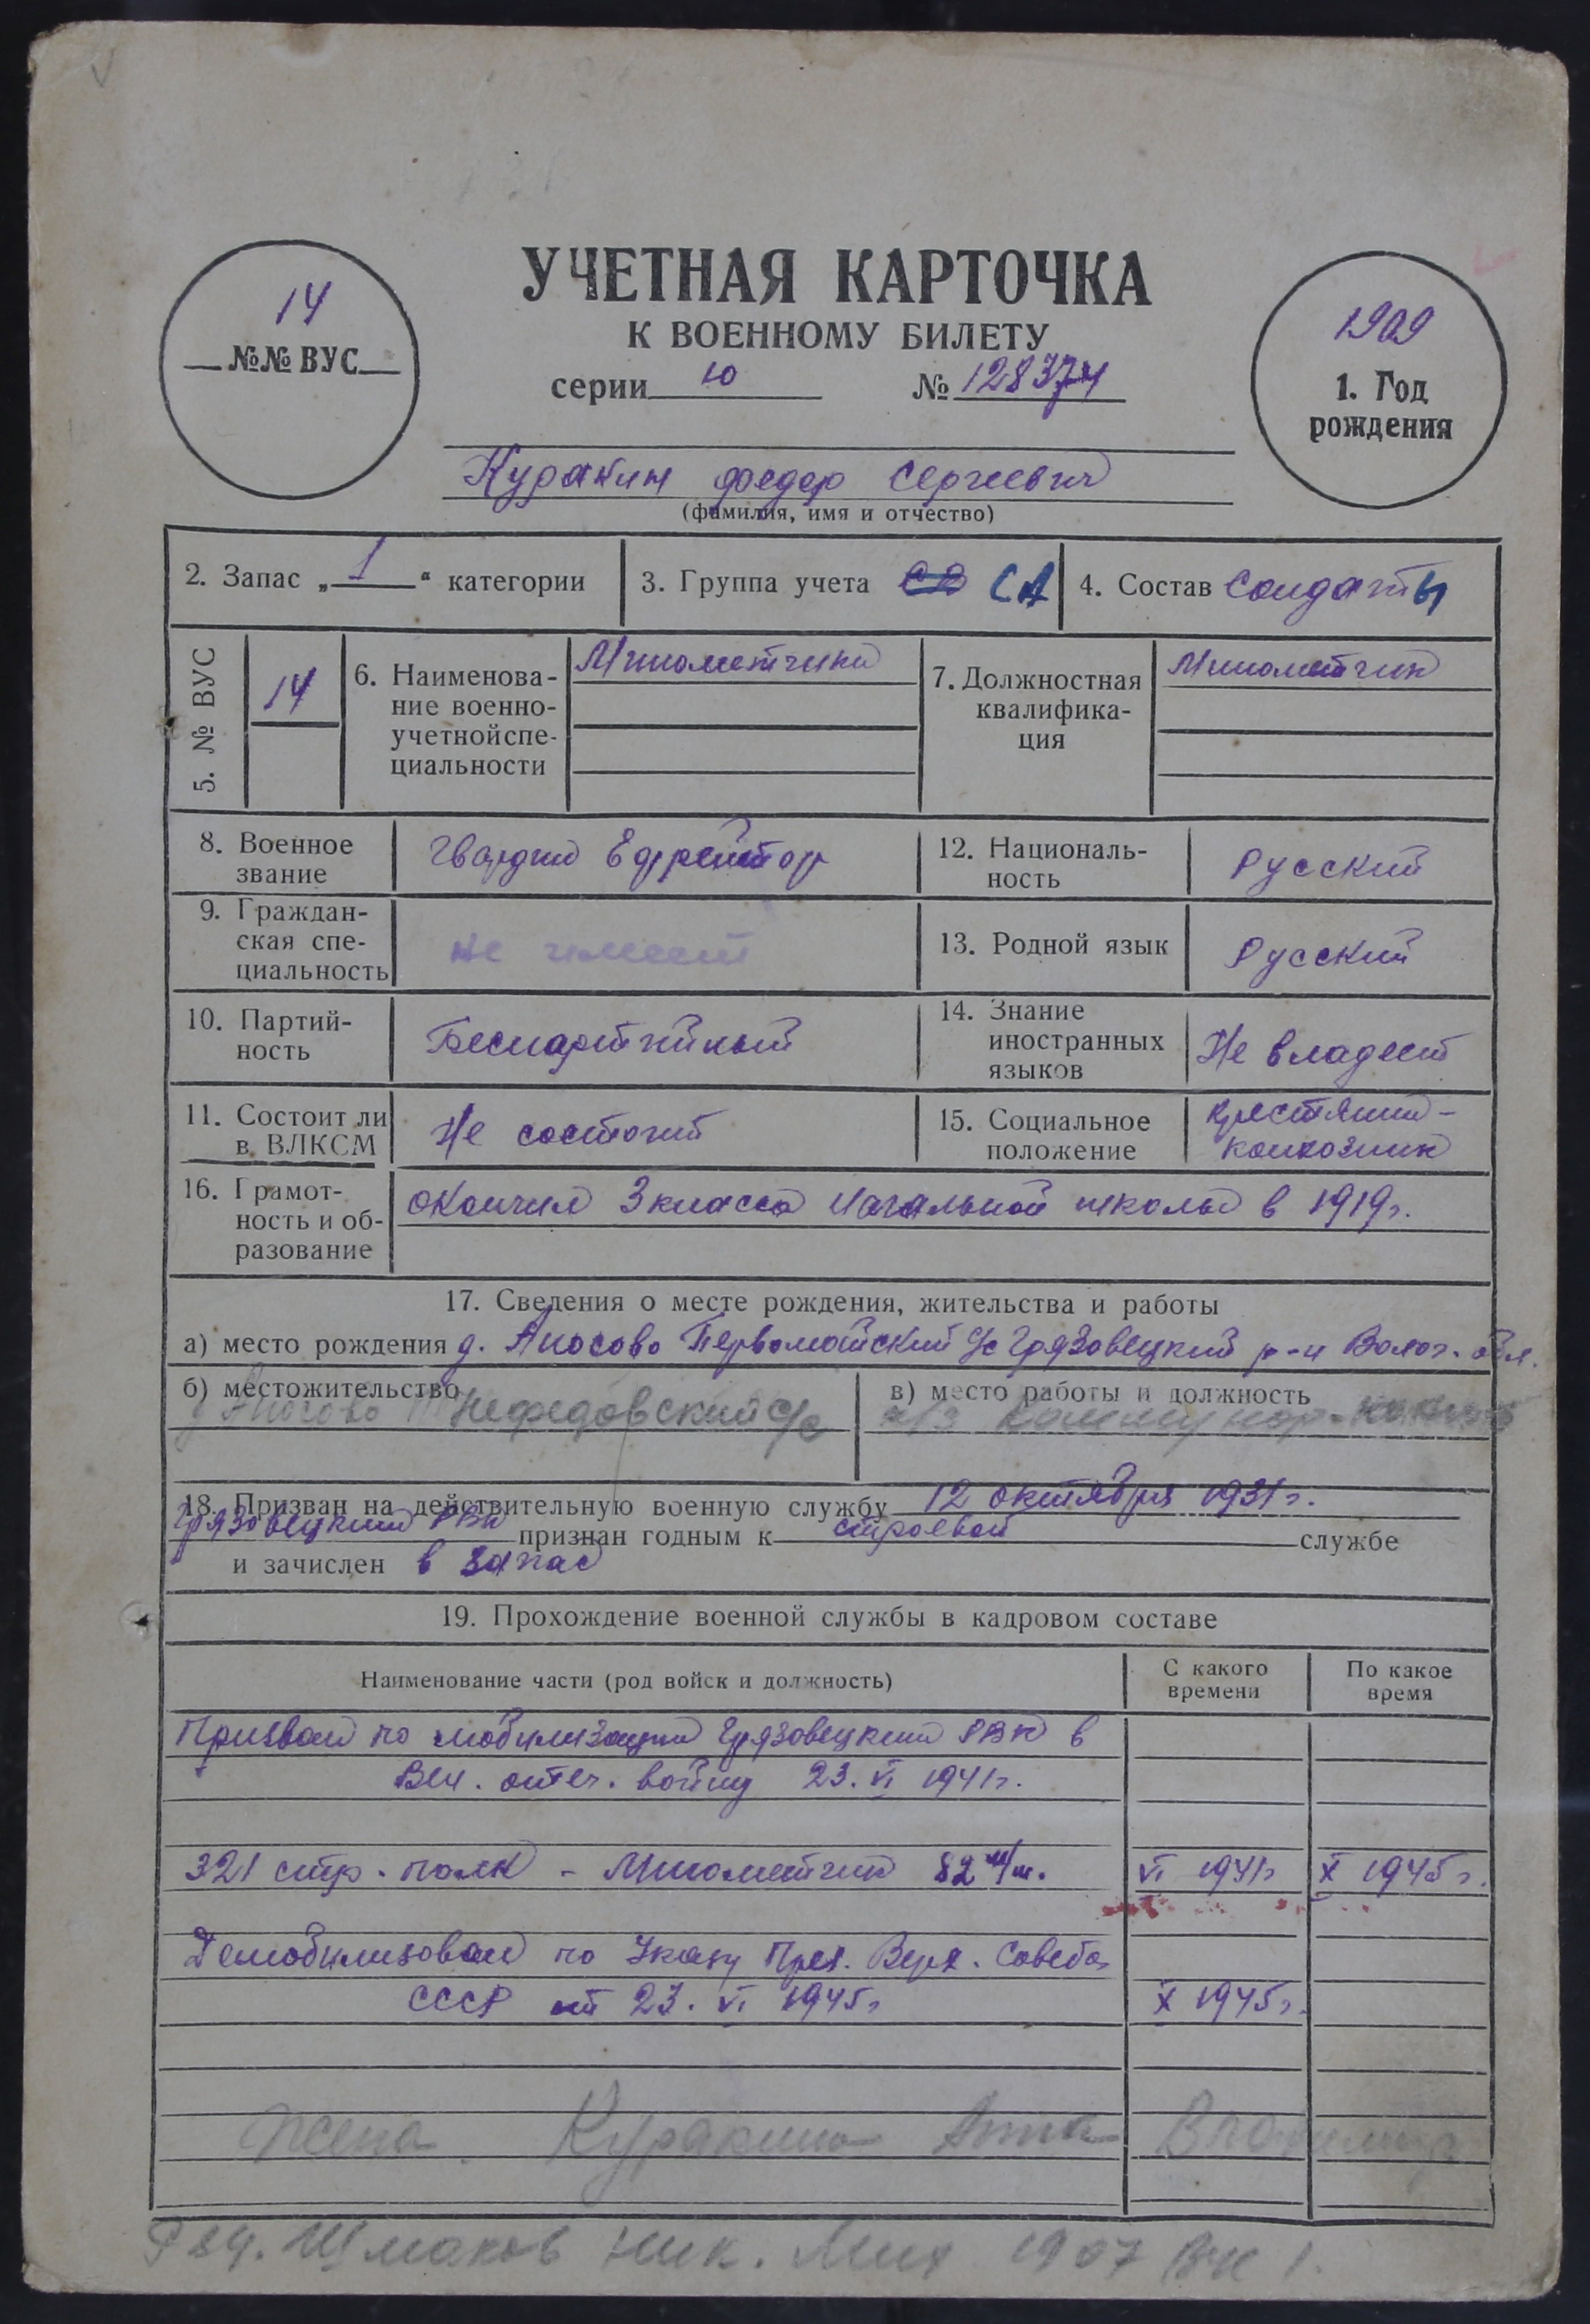 14
№№ ВУС
УЧЕТНАЯ КАРТОЧКА
К ВОЕННОМУ БИЛЕТУ
серии Ю № 128374
1909
1. Год
рождения
Куракин Федор Сергеевич
(фамилия, имя и отчество)
2. Запас „1“ категории
3. Группа учета СА
4. Состав Солдаты
5. № ВУС
14
6. Наименова-
ние военно-
учетнойспе-
циальности
Минометчики
7. Должностная
квалифика-
ция
Минометчик
8. Военное
звание
Гвардии Ефрейтор
12. Националь-
ность
Русский
9. Граждан-
ская спе-
циальность
не имеет
13. Родной язык
Русский
10. Партий-
ность
Беспартийный
14. Знание
иностранных
языков
Не владеет
11. Состоит ли
в ВЛКСМ
Не состоит
15. Социальное
положение
крестянин-
колхозник
16. Грамот-
ность и об-
разование
окончил 3 класса начальной школы в 1919г.
17. Сведения о месте рождения, жительства и работы
а) место рождения д. Аносово Первомайский с/с Грязовецкий р-н Волог. обл.
б) местожительство
д Аносово Нефедовский с/с
в) место работы и должность
к/з Коммунар
18. Призван на действительную военную службу 12 октября 1931г.
Грязовецким РВК признан годным к строевой службе
и зачислен в запас
19. Прохождение военной службы в кадровом составе
Наименование части (род войск и должность)
С какого
времени
По какое
время
Призван по мобилизации Грязовецким РВК в
Вел. отеч. войну 23. VI 1941г.
321 стр. полк - Минометчик 82 м/м. VI 1941г X 1945г.
Демобилизован по Указу През. Верх. Совета
СССР от 23. VI 1945г X 1945г.
Жена Куракина Анна Владимир.
Шмаков Ник. Мих 1907